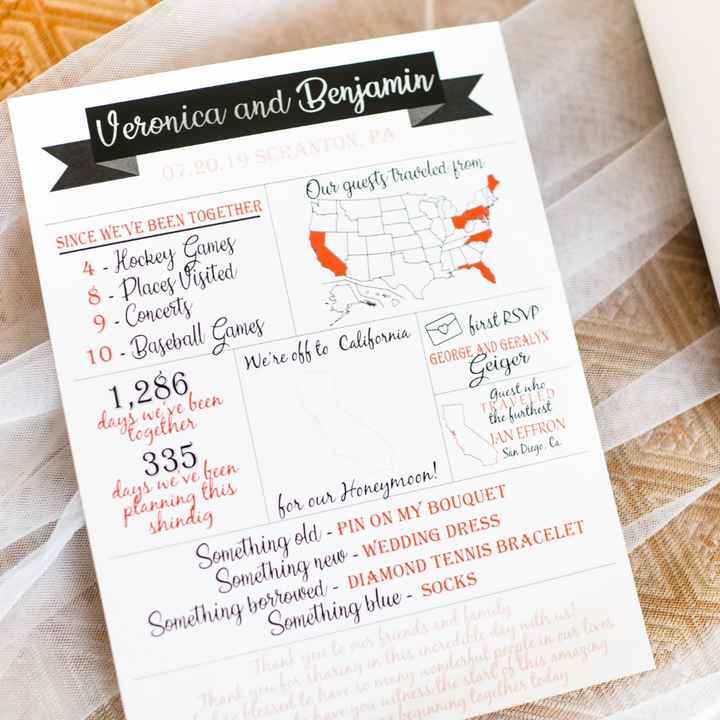 Veronica and Benjamin
07.20.19 SCRANTON, PA
SINCE WE'VE BEEN TOGETHER
4 - Hockey Games
8 - Places Visited
9 - Concerts
10 - Baseball Games
Our guests traveled from
1,286
days we've been
together
335
days we've been
planning this
shindig
We're off to California
for our Honeymoon!
first RSVP
GEORGE AND GERALYN
Geiger
Guest who
TRAVELED
the furthest
JAN EFFRON
San Diego, Ca.
Something old - PIN ON MY BOUQUET
Something new - WEDDING DRESS
Something borrowed - DIAMOND TENNIS BRACELET
Something blue - SOCKS
Thank you to our friends and family
Thank you for sharing in this incredible day with us!
blessed to have so many wonderful people in our lives
to have you witness the start of this amazing
beginning together today